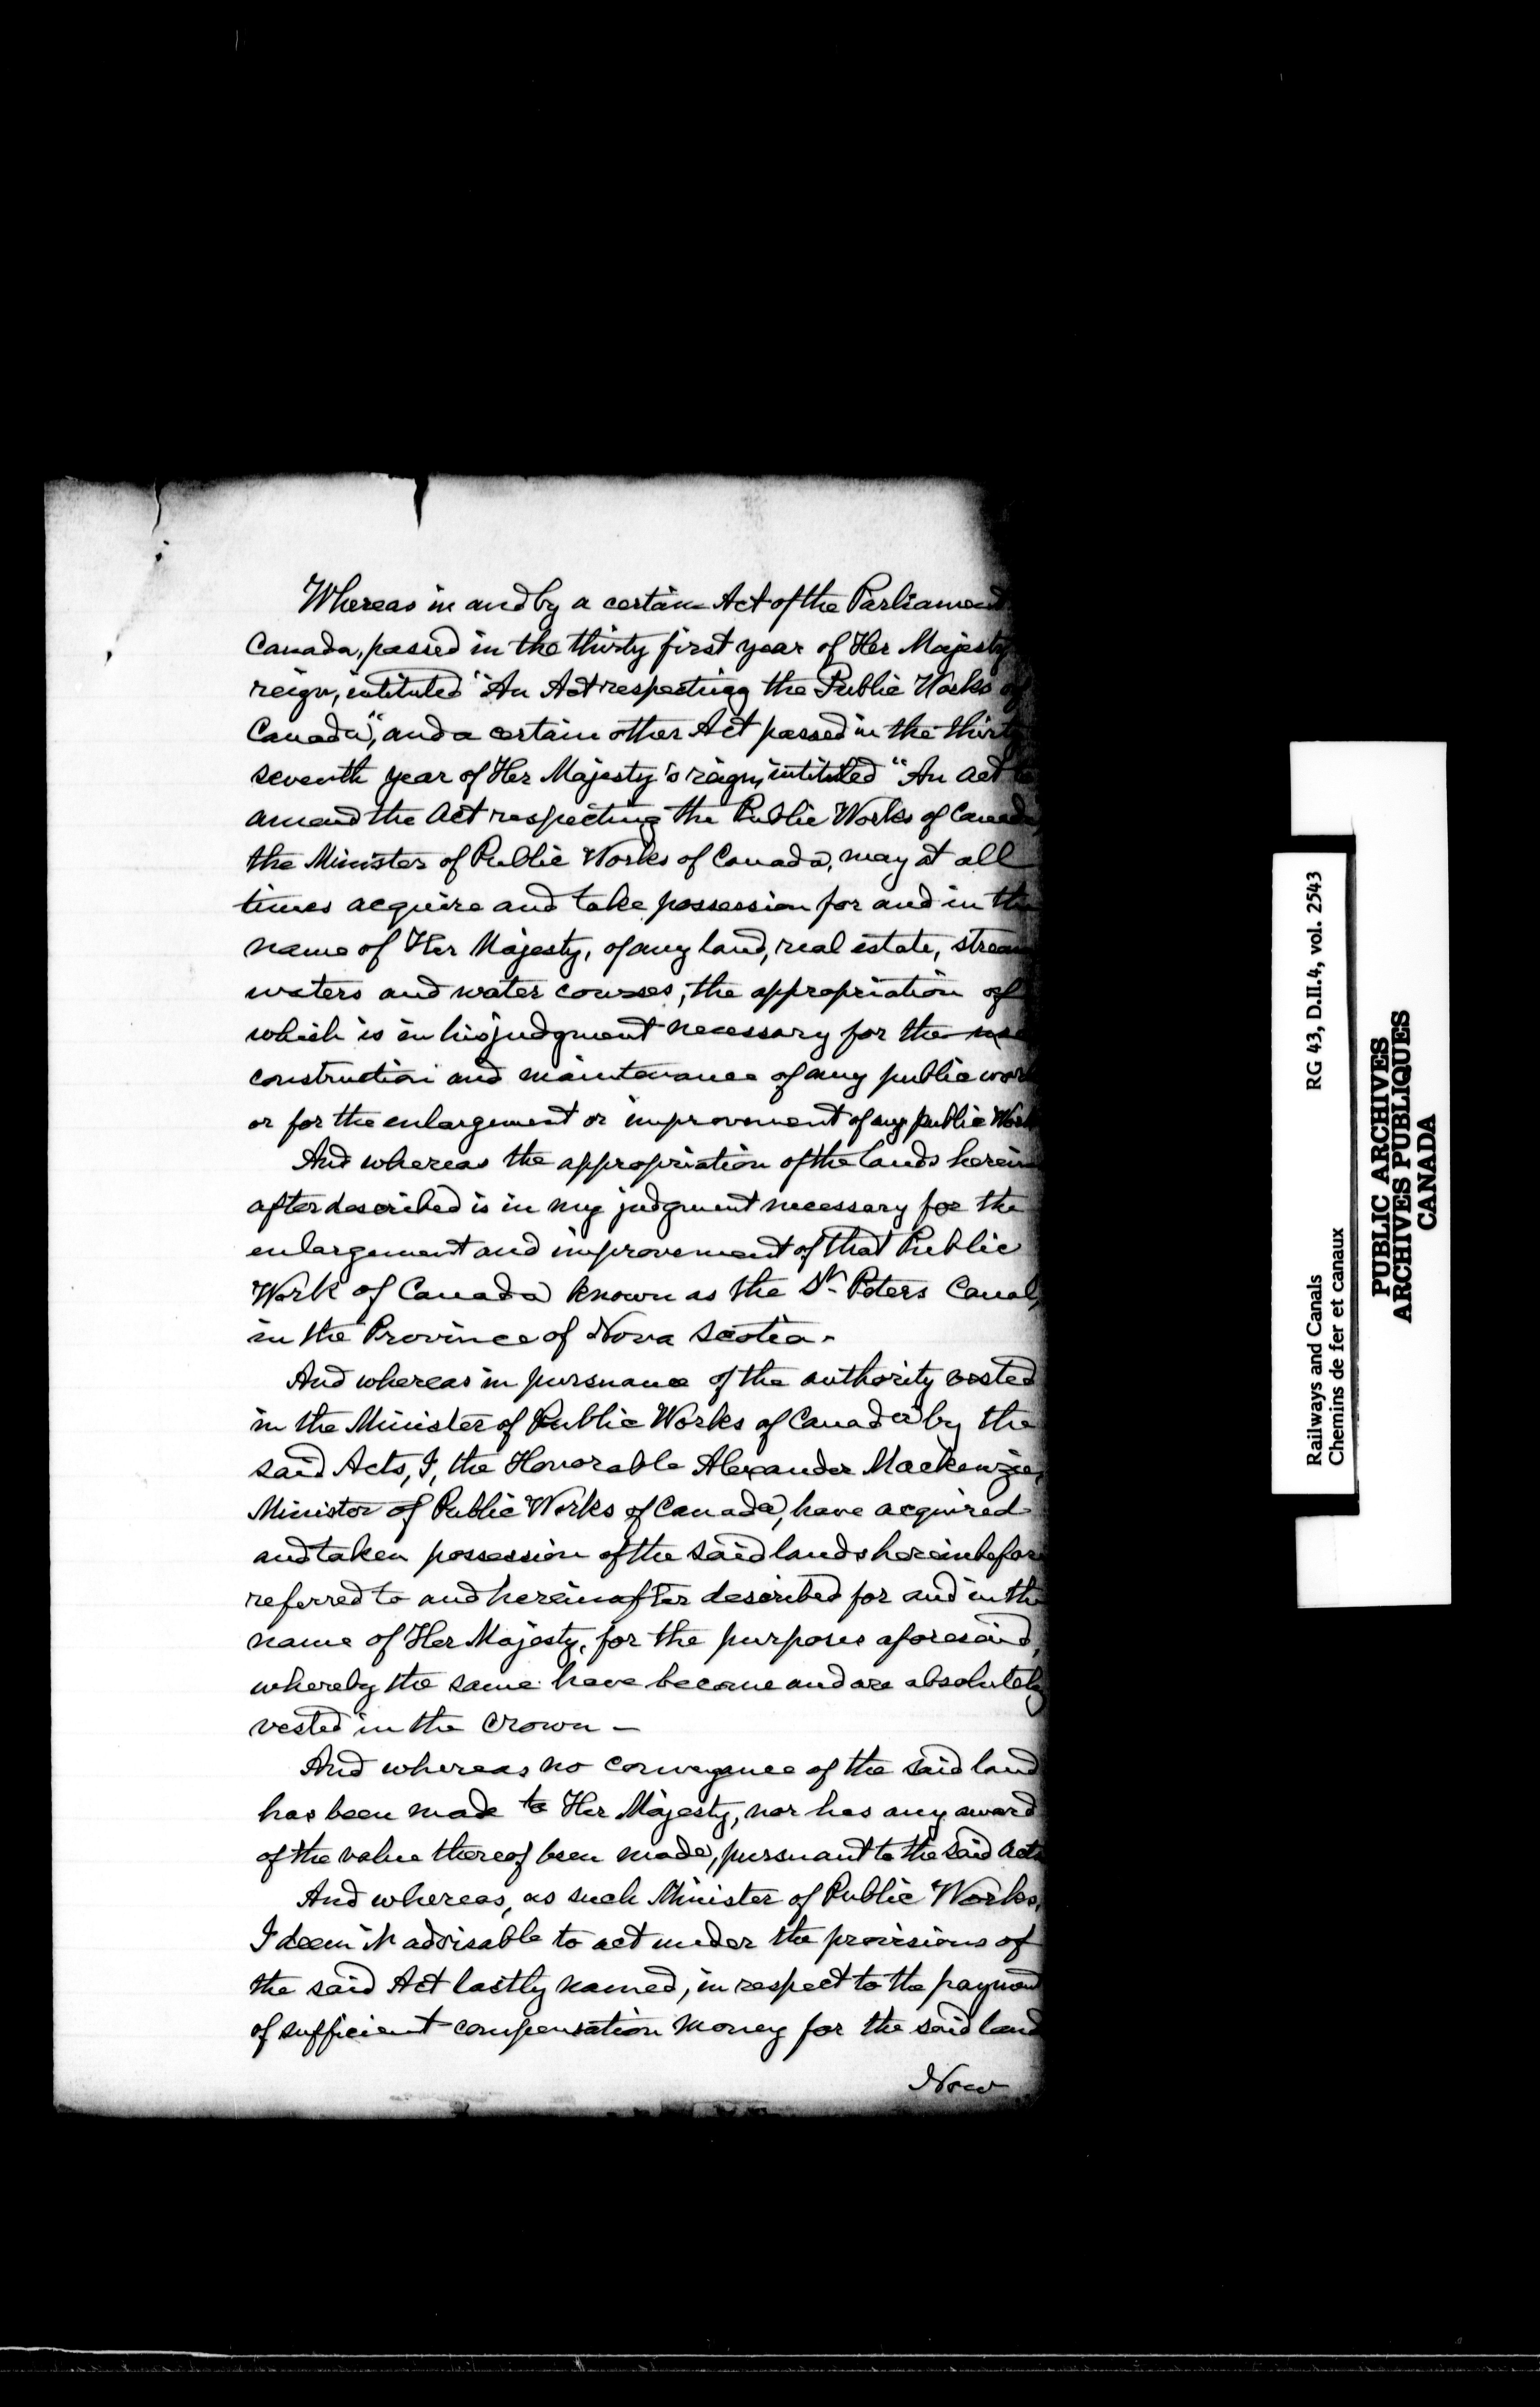 Whereas in and by a certain Act of the Parliament
Canada, passed in the thirty first year of Her Majesty
reign, intituled "An Act respecting the Public Works of
Canada", and a certain other Act passed in the thirty
seventh year of Her Majesty's reign, intituled "An act to
amend the Act respecting the Public Works of Canada
the Minister of Public Works of Canada, may at all
times acquire and take possession for and in the
name of Her Majesty, of any land, real estate, stream
waters and water courses, the appropriation of
which is in his judgment necessary for the use
construction and maintenance of any public work
or for the enlargement or improvement of any public Work
And whereas the appropriation of the lands herein
after described is in my judgment necessary for the
enlargement and improvement of that Public
Work of Canada known as the St. Peters Canal,
in the Province of Nova Scotia.
And whereas in pursuance of the authority vested
in the Minister of Public Works of Canada by the
said Acts, I, the Honorable Alexander Mackenzie,
Minister of Public Works of Canada, have acquired
and taken possession of the said lands hereinbefore
referred to and hereinafter described for and in the
name of Her Majesty, for the purposes aforesaid,
whereby the same have become and are absolutely
vested in the Crown —
And whereas no conveyance of the said land
has been made to Her Majesty, nor has any award
of the value thereof been made, pursuant to the said Acts
And whereas, as such Minister of Public Works,
I deem it advisable to act under the provisions of
the said Act lastly named, in respect to the payment
of sufficient compensation money for the said land
Now
Railways and Canals RG 43, D.II.4, vol. 2543
Chemins de fer et canaux
PUBLIC ARCHIVES
ARCHIVES PUBLIQUES
CANADA